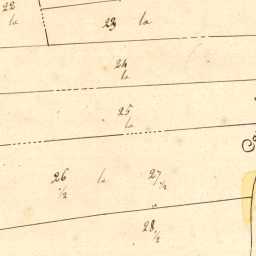 22
la
23 la
24
la
25
la
26 1/2 la 27 1/2
28 1/2